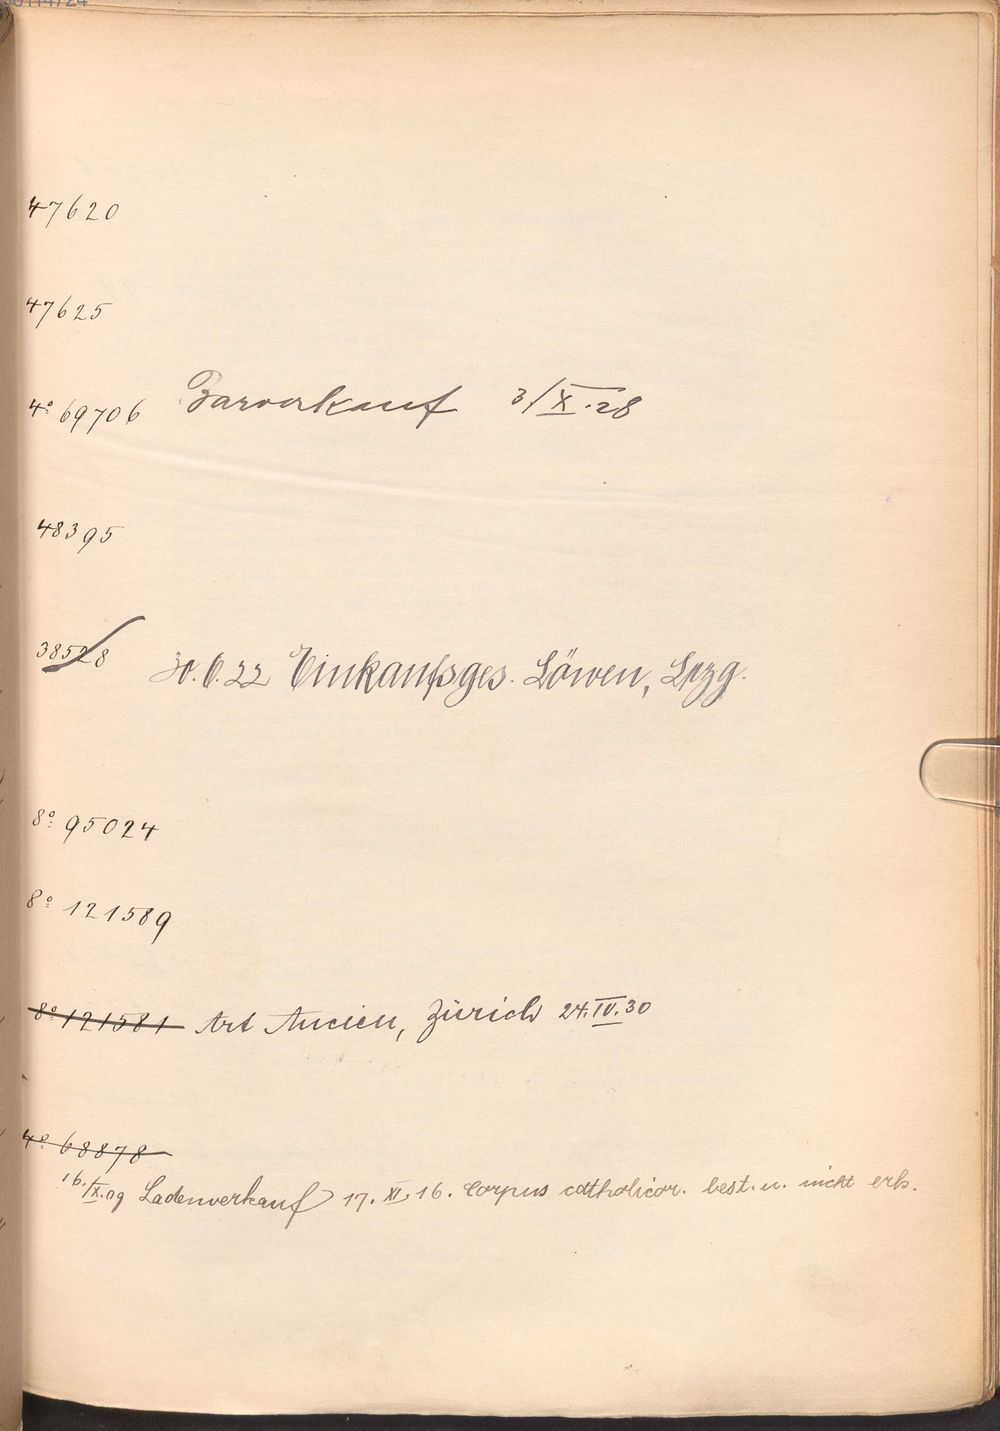 47620
47625
4° 69706 Barverkauf 3/X.28
48395
38528 30.6.22 Einkaufsges. Löwen, Lpzg.
8° 95024
8° 121589
8° 121581 Art Ancien, Zürich 24.IV.30
4° 68878
16./IX.09 Ladenverkauf 17. XI. 16. Corpus catholicor. best. u. nicht erh.